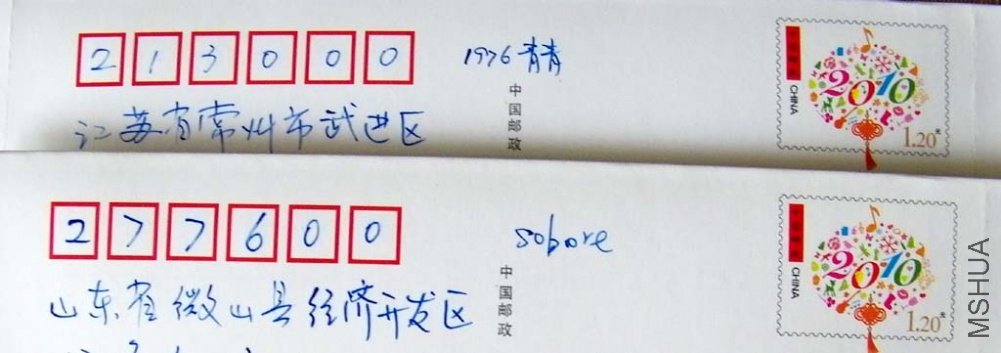 213000
1976青青
中国邮政
CHINA
2010
1.20元
江苏省常州市武进区
277600
sobore
中国邮政
CHINA
2010
1.20元
山东省微山县经济开发区
MSHUA